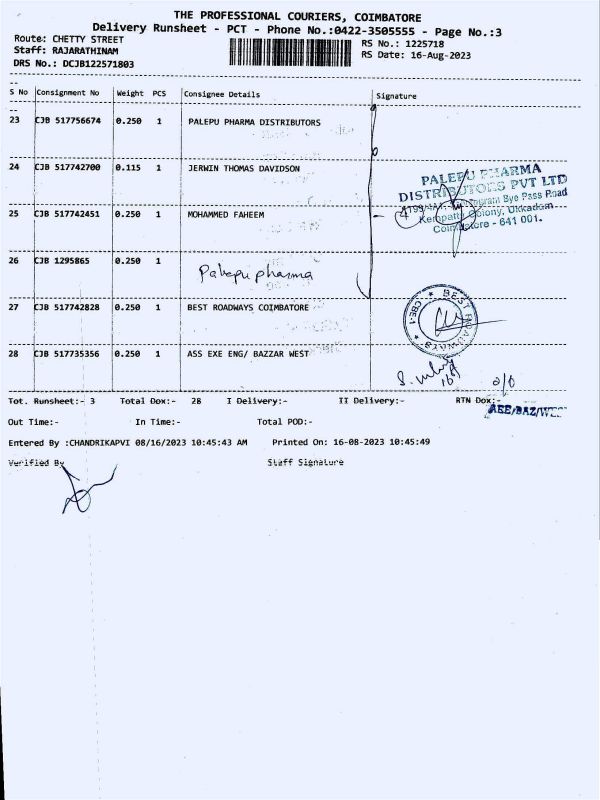 THE PROFESSIONAL COURIERS, COIMBATORE
Delivery Runsheet - PCT - Phone No.:0422-3505555 - Page No.:3
Route: CHETTY STREET
RS No.: 1225718
Staff: RAJARATHINAM
RS Date: 16-Aug-2023
DRS No.: DCJB122571803
S No Consignment No Weight PCS Consignee Details Signature
23 CJB 517756674 0.250 1 PALEPU PHARMA DISTRIBUTORS
24 CJB 517742700 0.115 1 JERWIN THOMAS DAVIDSON
PALEPU PHARMA
DISTRIBUTORS PVT LTD
Bye Pass Road
25 CJB 517742451 0.250 1 MOHAMMED FAHEEM
Colony, Ukkadam
Coimbatore - 641 001.
26 CJB 1295865 0.250 1 Palepu pharma
27 CJB 517742828 0.250 1 BEST ROADWAYS COIMBATORE
BEST ROADWAYS CBE-1
28 CJB 517735356 0.250 1 ASS EXE ENG/ BAZZAR WEST
Tot. Runsheet:- 3 Total Dox:- 28 I Delivery:- II Delivery:- RTN Dox:-
AEE/BAZ/WEST
Out Time:- In Time:- Total POD:-
Entered By :CHANDRIKAPVI 08/16/2023 10:45:43 AM Printed On: 16-08-2023 10:45:49
Verified By Staff Signature